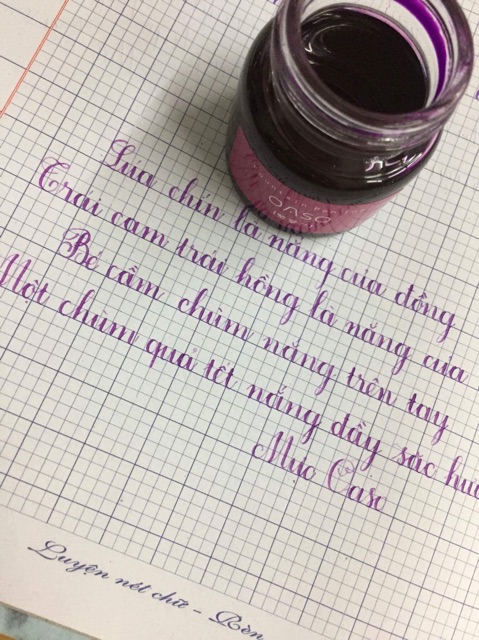 OASO
Lúa chín là nắng của đồng
Trái cam trái hồng là nắng của
Bé cầm chùm nắng trên tay
Một chùm quả tết nắng đầy sắc
Mực Oaso
Luyện nét chữ - Rèn